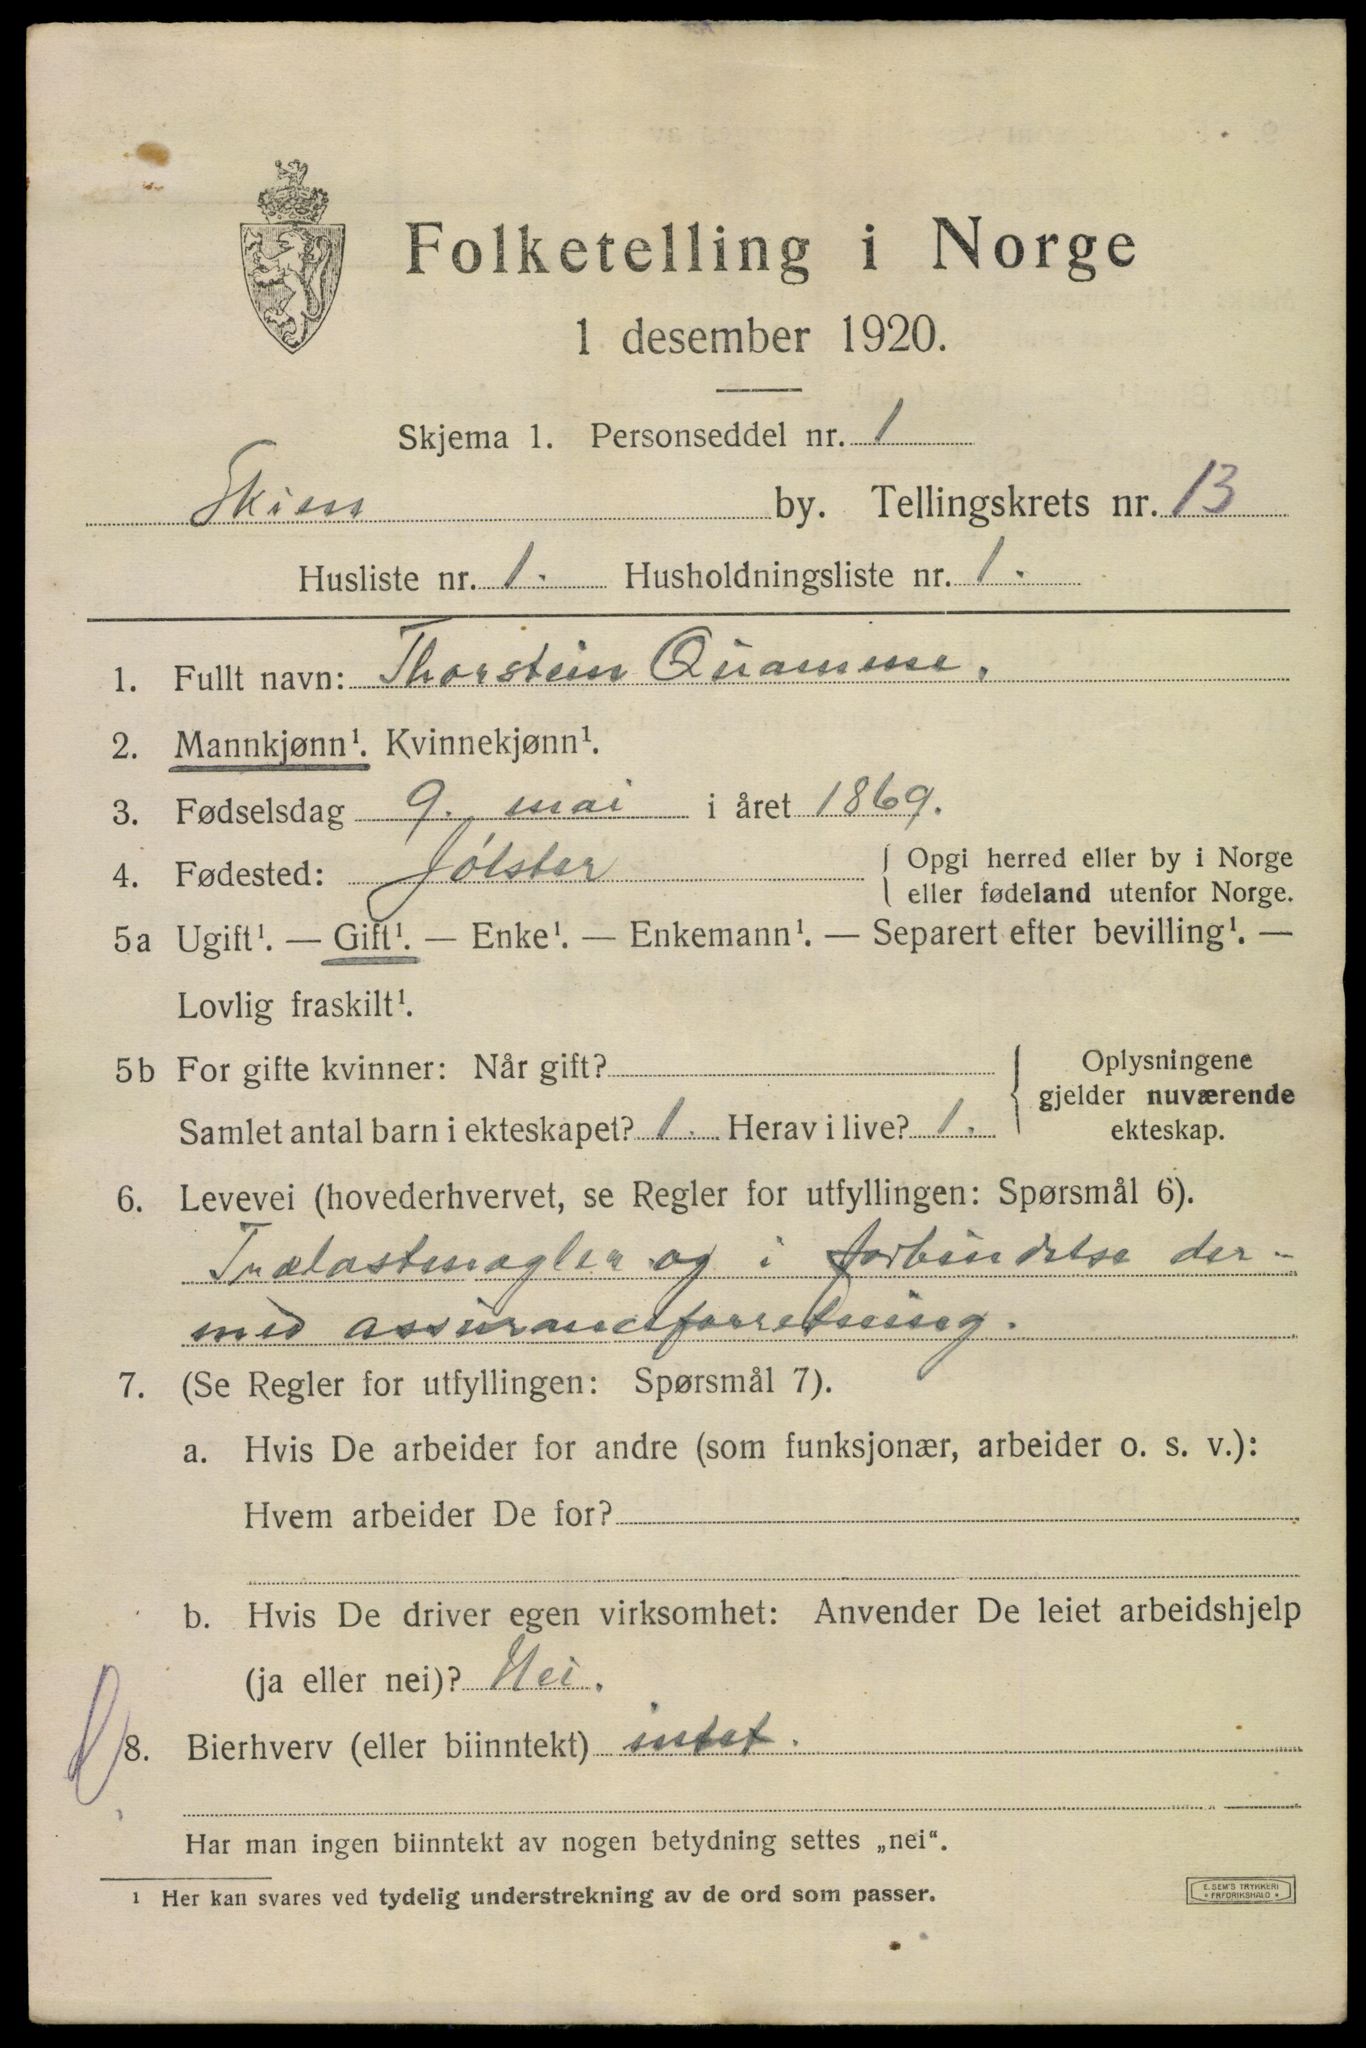 Folketelling i Norge
1 desember 1920.
Skjema 1. Personseddel nr. 1
Skien by. Tellingskrets nr. 13
Husliste nr. 1. Husholdningsliste nr. 1.
1. Fullt navn: Thorstein Quamme.
2. Mannkjønn¹. Kvinnekjønn¹.
3. Fødselsdag 9. mai i året 1869.
4. Fødested: Jølster { Opgi herred eller by i Norge
eller fødeland utenfor Norge.
5a Ugift¹. — Gift¹. — Enke¹. — Enkemann¹. — Separert efter bevilling¹. —
Lovlig fraskilt¹.
5b For gifte kvinner: Når gift?
Samlet antal barn i ekteskapet? 1. Herav i live? 1.
{ Oplysningene
gjelder nuværende
ekteskap.
6. Levevei (hovederhvervet, se Regler for utfyllingen: Spørsmål 6).
Trælastmægler og i forbindelse der-
med assuranceforretning.
7. (Se Regler for utfyllingen: Spørsmål 7).
a. Hvis De arbeider for andre (som funksjonær, arbeider o. s. v.):
Hvem arbeider De for?
b. Hvis De driver egen virksomhet: Anvender De leiet arbeidshjelp
(ja eller nei)? Nei.
8. Bierhverv (eller biinntekt) intet.
Har man ingen biinntekt av nogen betydning settes „nei“.
¹ Her kan svares ved tydelig understrekning av de ord som passer.
E. SEM'S TRYKKERI
FREDRIKSHALD